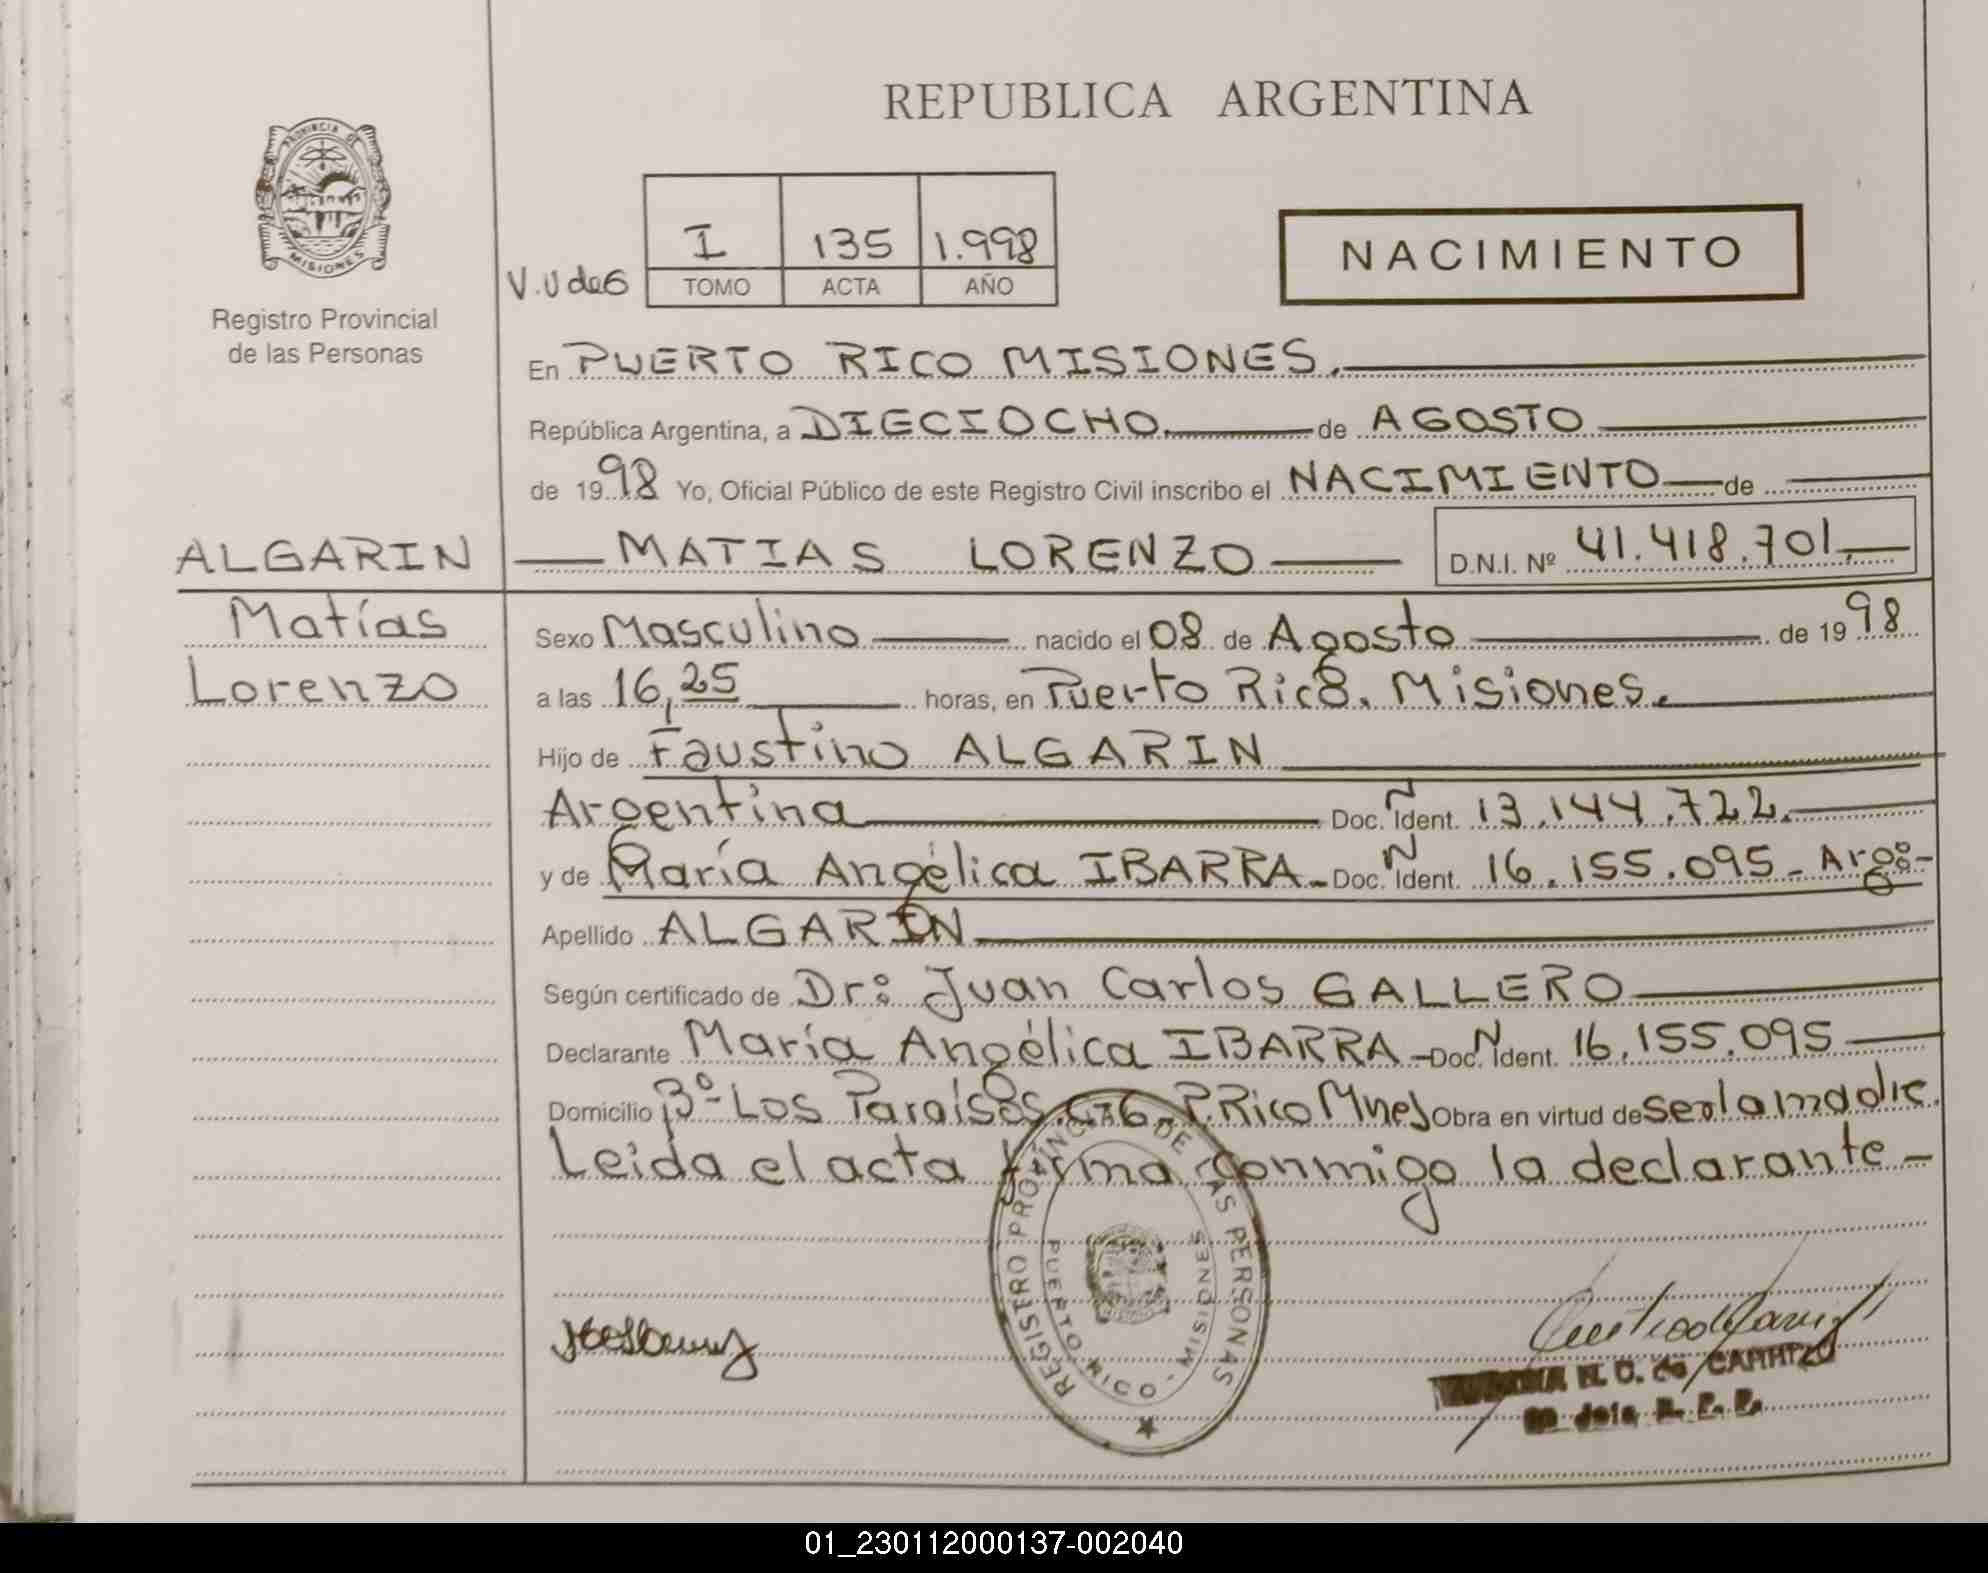 REPUBLICA ARGENTINA
PROVINCIA DE MISIONES
Registro Provincial
de las Personas
V.U de 6
I 135 1.998
TOMO ACTA AÑO
NACIMIENTO
En PUERTO RICO MISIONES.
República Argentina, a DIECIOCHO de AGOSTO
de 1998 Yo, Oficial Público de este Registro Civil inscribo el NACIMIENTO de
ALGARIN
MATIAS LORENZO D.N.I. Nº 41.418.701.
Matías
Lorenzo
Sexo Masculino nacido el 08 de Agosto de 1998
a las 16,25 horas, en Puerto Rico. Misiones.
Hijo de Faustino ALGARIN
Argentina Doc. Ident. 13.144.722.
y de María Angélica IBARRA - Doc. Ident. 16.155.095 - Arg:-
Apellido ALGARIN
Según certificado de Dr: Juan Carlos GALLERO
Declarante María Angélica IBARRA - Doc. Ident. 16.155.095
Domicilio Bº- Los Paraísos. C-76- P. Rico Mnes Obra en virtud de ser la madre.
Leida el acta firma conmigo la declarante -
REGISTRO PROVINCIAL DE LAS PERSONAS
PUERTO RICO - MISIONES
N. C. de CARRIZO
R. P. P.
01_230112000137-002040